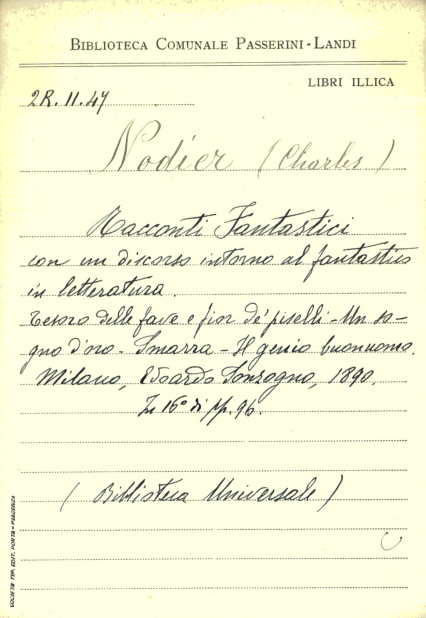 BIBLIOTECA COMUNALE PASSERINI-LANDI
LIBRI ILLICA
2R. II. 47
Nodier (Charles)
Racconti Fantastici
con un discorso intorno al fantastico
in letteratura.
Tesoro delle fave e fior de' piselli - Un so-
gno d'oro - Smarra - Il genio buonuomo.
Milano, Edoardo Sonzogno, 1890.
In 16° di pp. 96.
(Biblioteca Universale)
SOCIETÀ TIP. EDIT. PORTA - PIACENZA